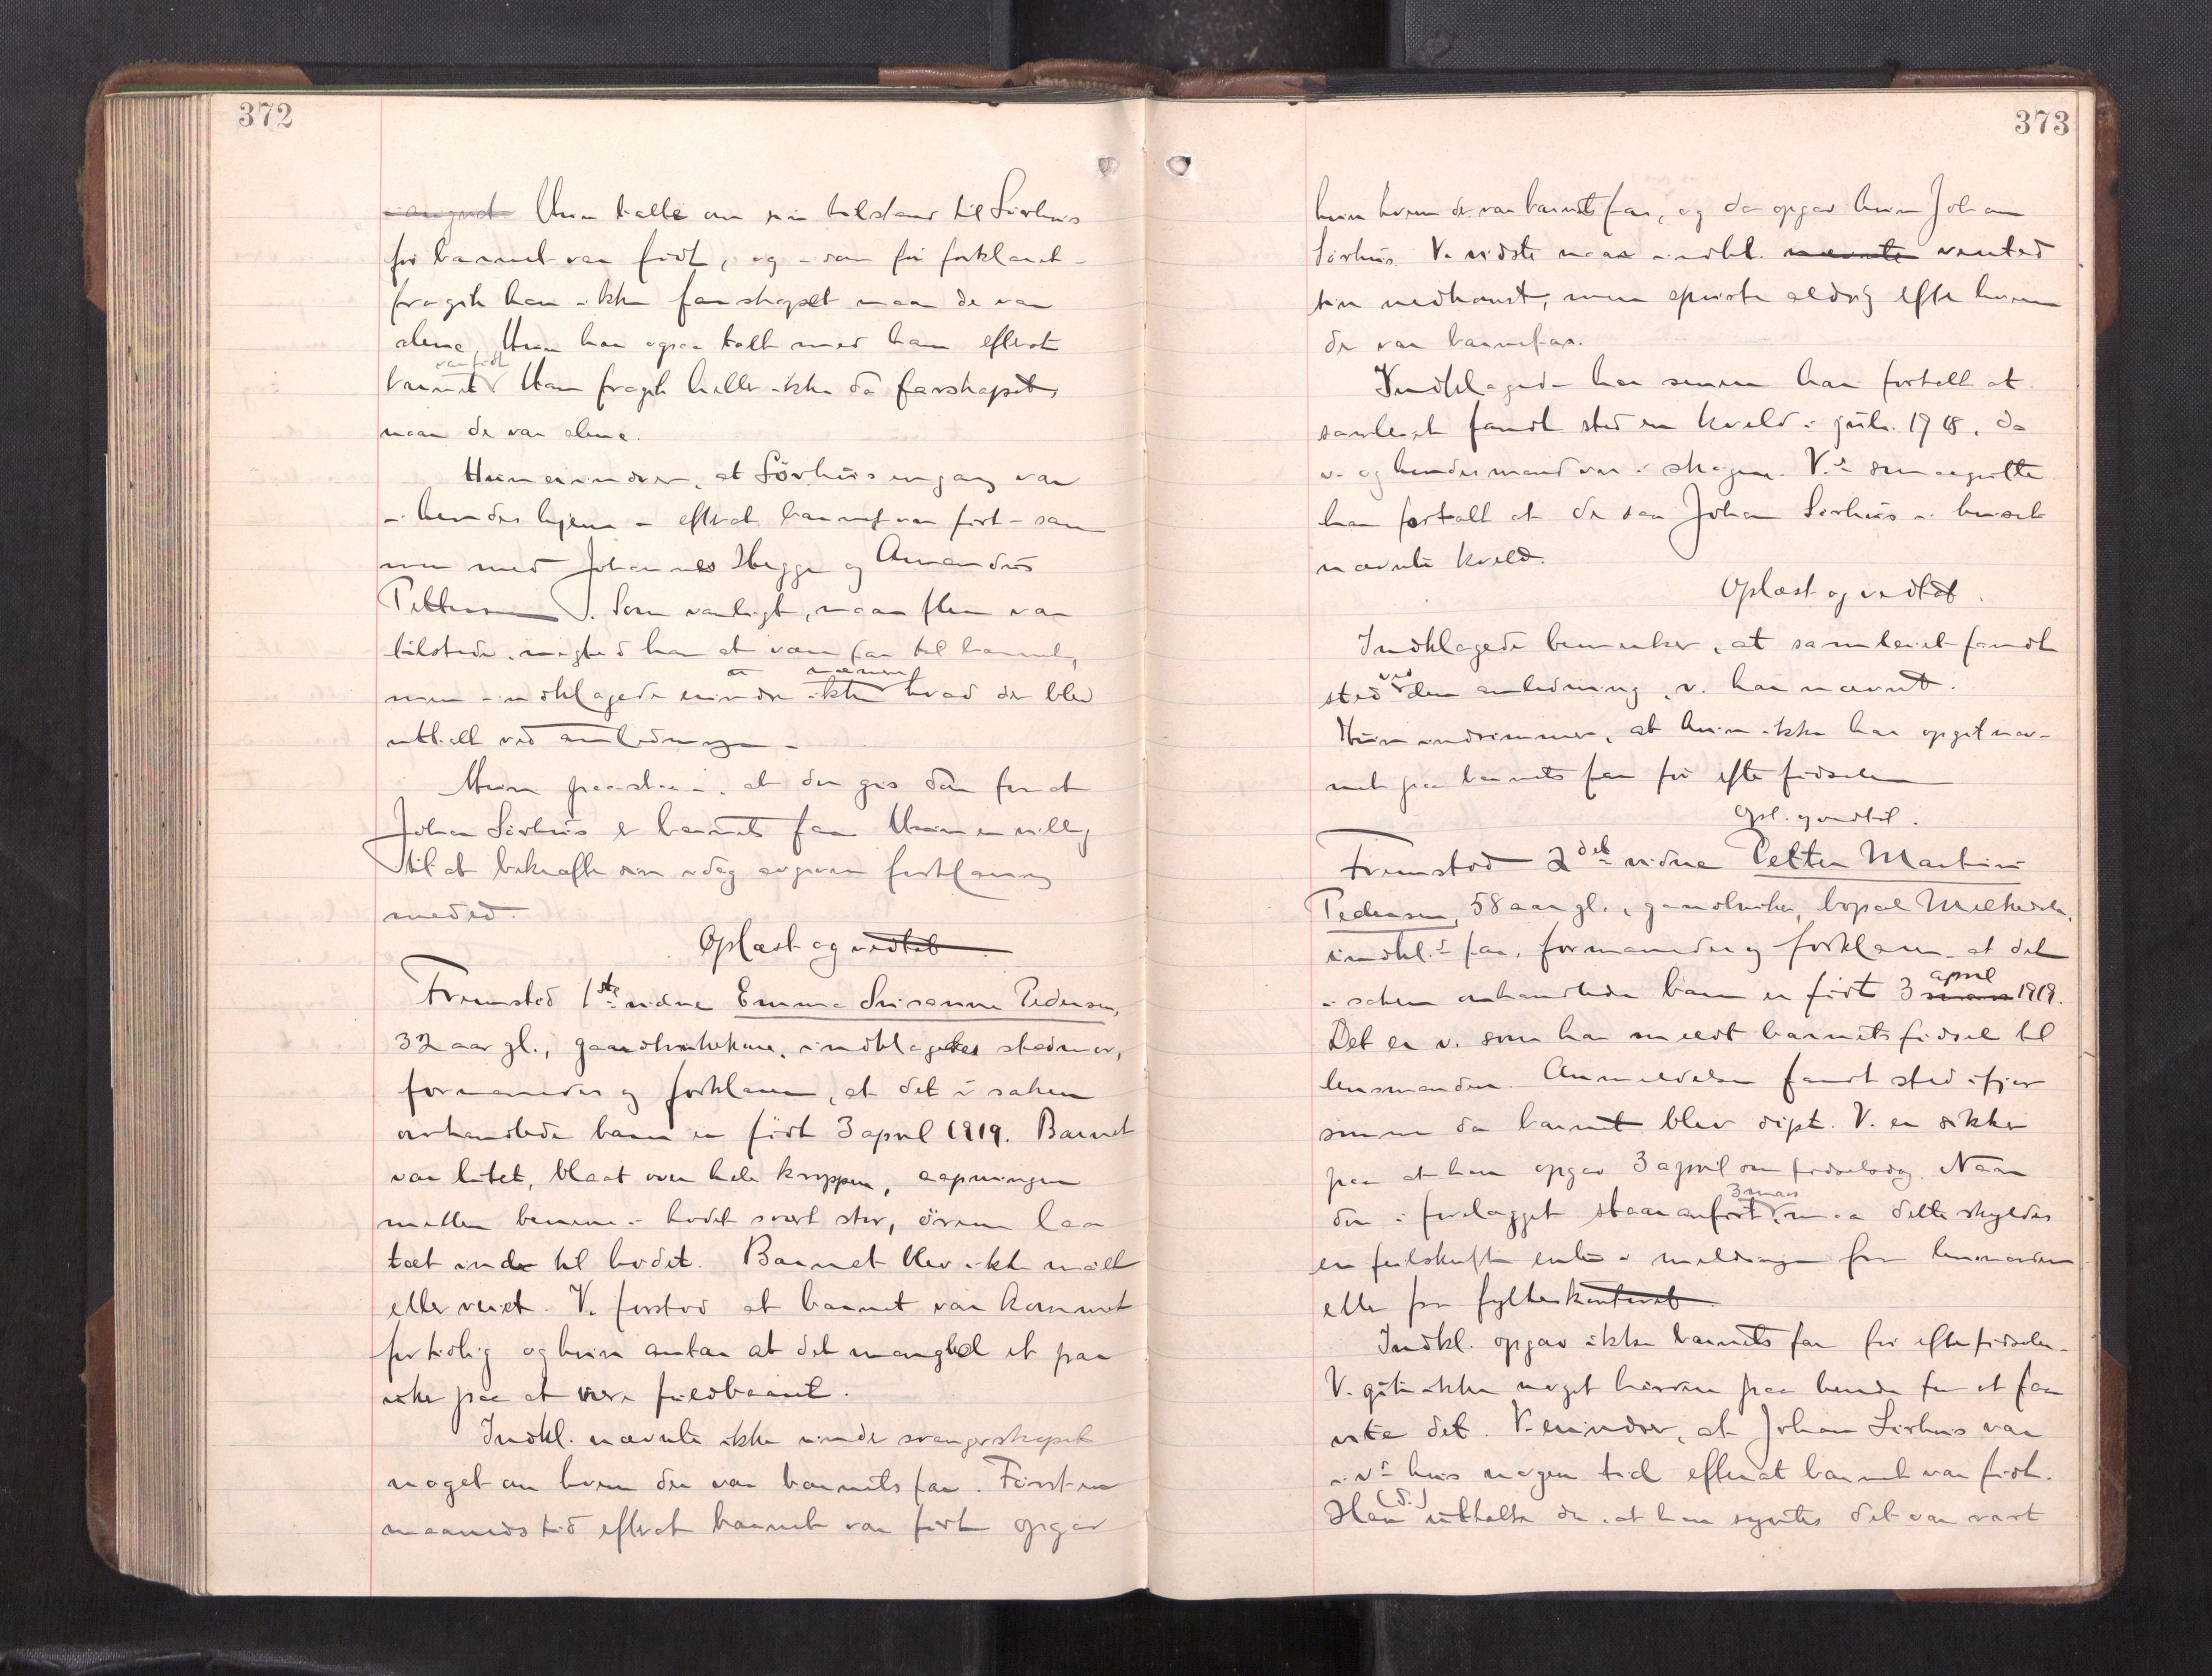 372
i august Hun talte om sin tilstand til Sørhus
før barnet var født, og – som før forklaret –
fragik han ikke farskapet naar de var
alene. Hun har ogsaa talt med ham efterat
barnet var født. Han fragik heller ikke da farskapet,
naar de var alene.
Hun erindrer, at Sörhus engang var
i hendes hjem – efterat barnet var født – sam-
men med Johannes Hegge og Amandus
Pettersen. Som vanligt, naar flere var
tilstede, negted han at være far til barnet,
men indklagede erindrer ikke nærmere hvad der blev
uttalt ved anledningen.
Hun paastaar, at der gis dom for at
Johan Sörhus er barnets far. Hun er villig
til at bekræfte sin idag avgivne forklaring
med ed.
Oplæst og vedtat
Fremstod 1ste vidne Emma Susanne Pedersen,
32 aar gl., gaardbrukerkone, indklagedes stedmor,
formanedes og forklarer, at det i saken
omhandlede barn er født 3 april 1919. Barnet
var litet, blaat over hele kroppen, aapningen
mellem benene i hodet svært stor, örene laa
tæt inde til hodet. Barnet blev ikke maalt
eller veiet. V. forstod at barnet var kommet
for tidlig og hun antar at det manglet et par
uker paa at være fuldbaaret.
Indkl. nævnte ikke under svangerskapet
noget om hvem der var barnets far. Først en
maaneds tid efterat barnet var født opgav
373
hun hvem der var barnets far, og da opgav hun Johan
Sörhus. V. vidste naar indkl. nævnte ventet
sin nedkomst, men spurte aldrig efter hvem
der var barnefar.
Indklagede har senere har fortalt at
samleiet fandt sted en kveld i juli 1918, da
v. og hendes mand var i skogen. V.s smaagutter
har fortalt at de saa Johan Sörhus i huset
nævnte kveld.
Oplæst og vedtat.
Indklagede bemerker, at samleiet fandt
sted ved den anledning, v. har nævnt.
Hun indrømmer, at hun ikke har opgit nav-
net paa barnets far før efter fødselen
Opl. og vedtat.
Fremstod 2det vidne Petter Martin
Pedersen, 58 aar gl., gaardbruker, bopæl
indkl.s far, formanedes og forklarer at det
i saken omhandlede barn er født 3 mars april 1919.
Det er v. som har meldt barnets fødsel til
lensmanden. Anmeldelsen fandt sted ifjor
sommer da barnet blev døpt. V. er sikker
paa at han opgav 3 april som fødselsdag. Naar
der i forelægget staar anført 3 mars, maa dette skyldes
en feilskrift enten i meldingen fra lensmanden
eller fra fylkeskontoret.
Indkl. opgav ikke barnets far før efter fødselen.
V. gik ikke noget haardere paa hende for at faa
vite det. V. erindrer, at Johan Sörhus var
i v.s hus nogen tid efterat barnet var født.
Han (S.) uttalte da, at han syntes det var rart